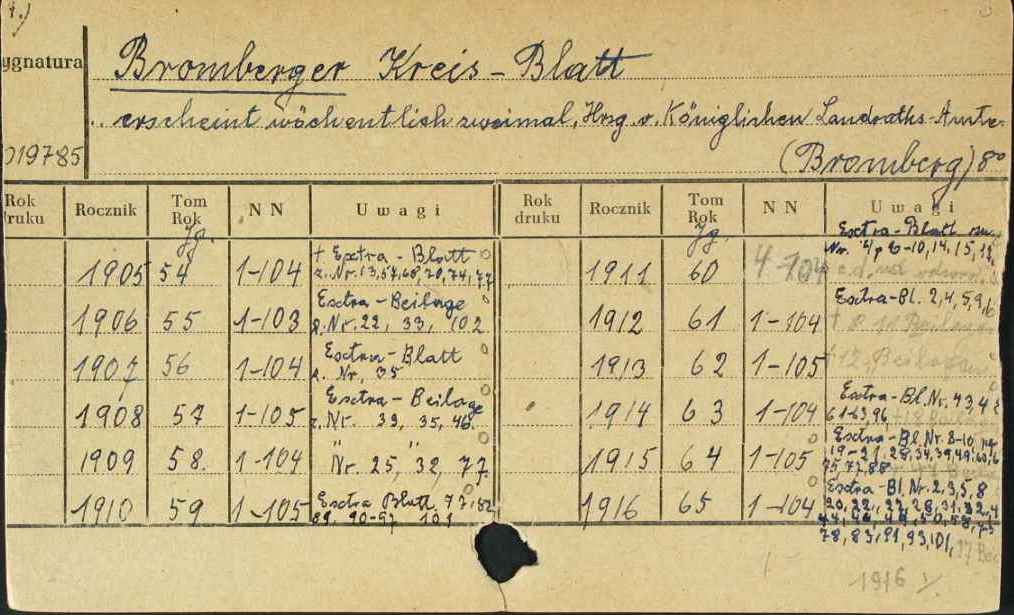 ygnatura
Bromberger Kreis-Blatt
erscheint wöchentlich zweimal, Hrsg. v. Königlichen Landraths-Amte.
019785
(Bromberg) 8°
Rok druku Rocznik Tom Rok NN Uwagi Rok druku Rocznik Tom Rok NN Uwagi
Jg. Jg.
1905 54 1-104 + Extra-Blatt
z. Nr. 13, 57, 68, 70, 74, 77
1906 55 1-103 Extra-Beilage
z. Nr. 22, 33, 102
1907 56 1-104 Extra-Blatt
z. Nr. 35
1908 57 1-105 Extra-Beilage
z. Nr. 33, 35, 46.
1909 58. 1-104 " "
Nr. 25, 32, 77.
1910 59 1-105 Extra Blatt 77, 82
89, 90-97 101
Extra-Blatt
Nr. 10, 14, 15,
1911 60 4-104
Extra-Bl. 2, 4, 5, 9,
1912 61 1-104
1913 62 1-105
Extra-Bl. Nr. 43,
1914 63 1-104 61-63, 96,
Extra-Bl. Nr. 8-10,
1915 64 1-105 19-21, 28, 34, 39, 49,
75, 77, 88
1916 65 1-104 Extra-Bl. Nr. 2, 3, 5, 8
20, 22, 27, 28, 31, 32,
44, 46, 49, 50, 58,
78, 83, 91, 93, 101,
1916